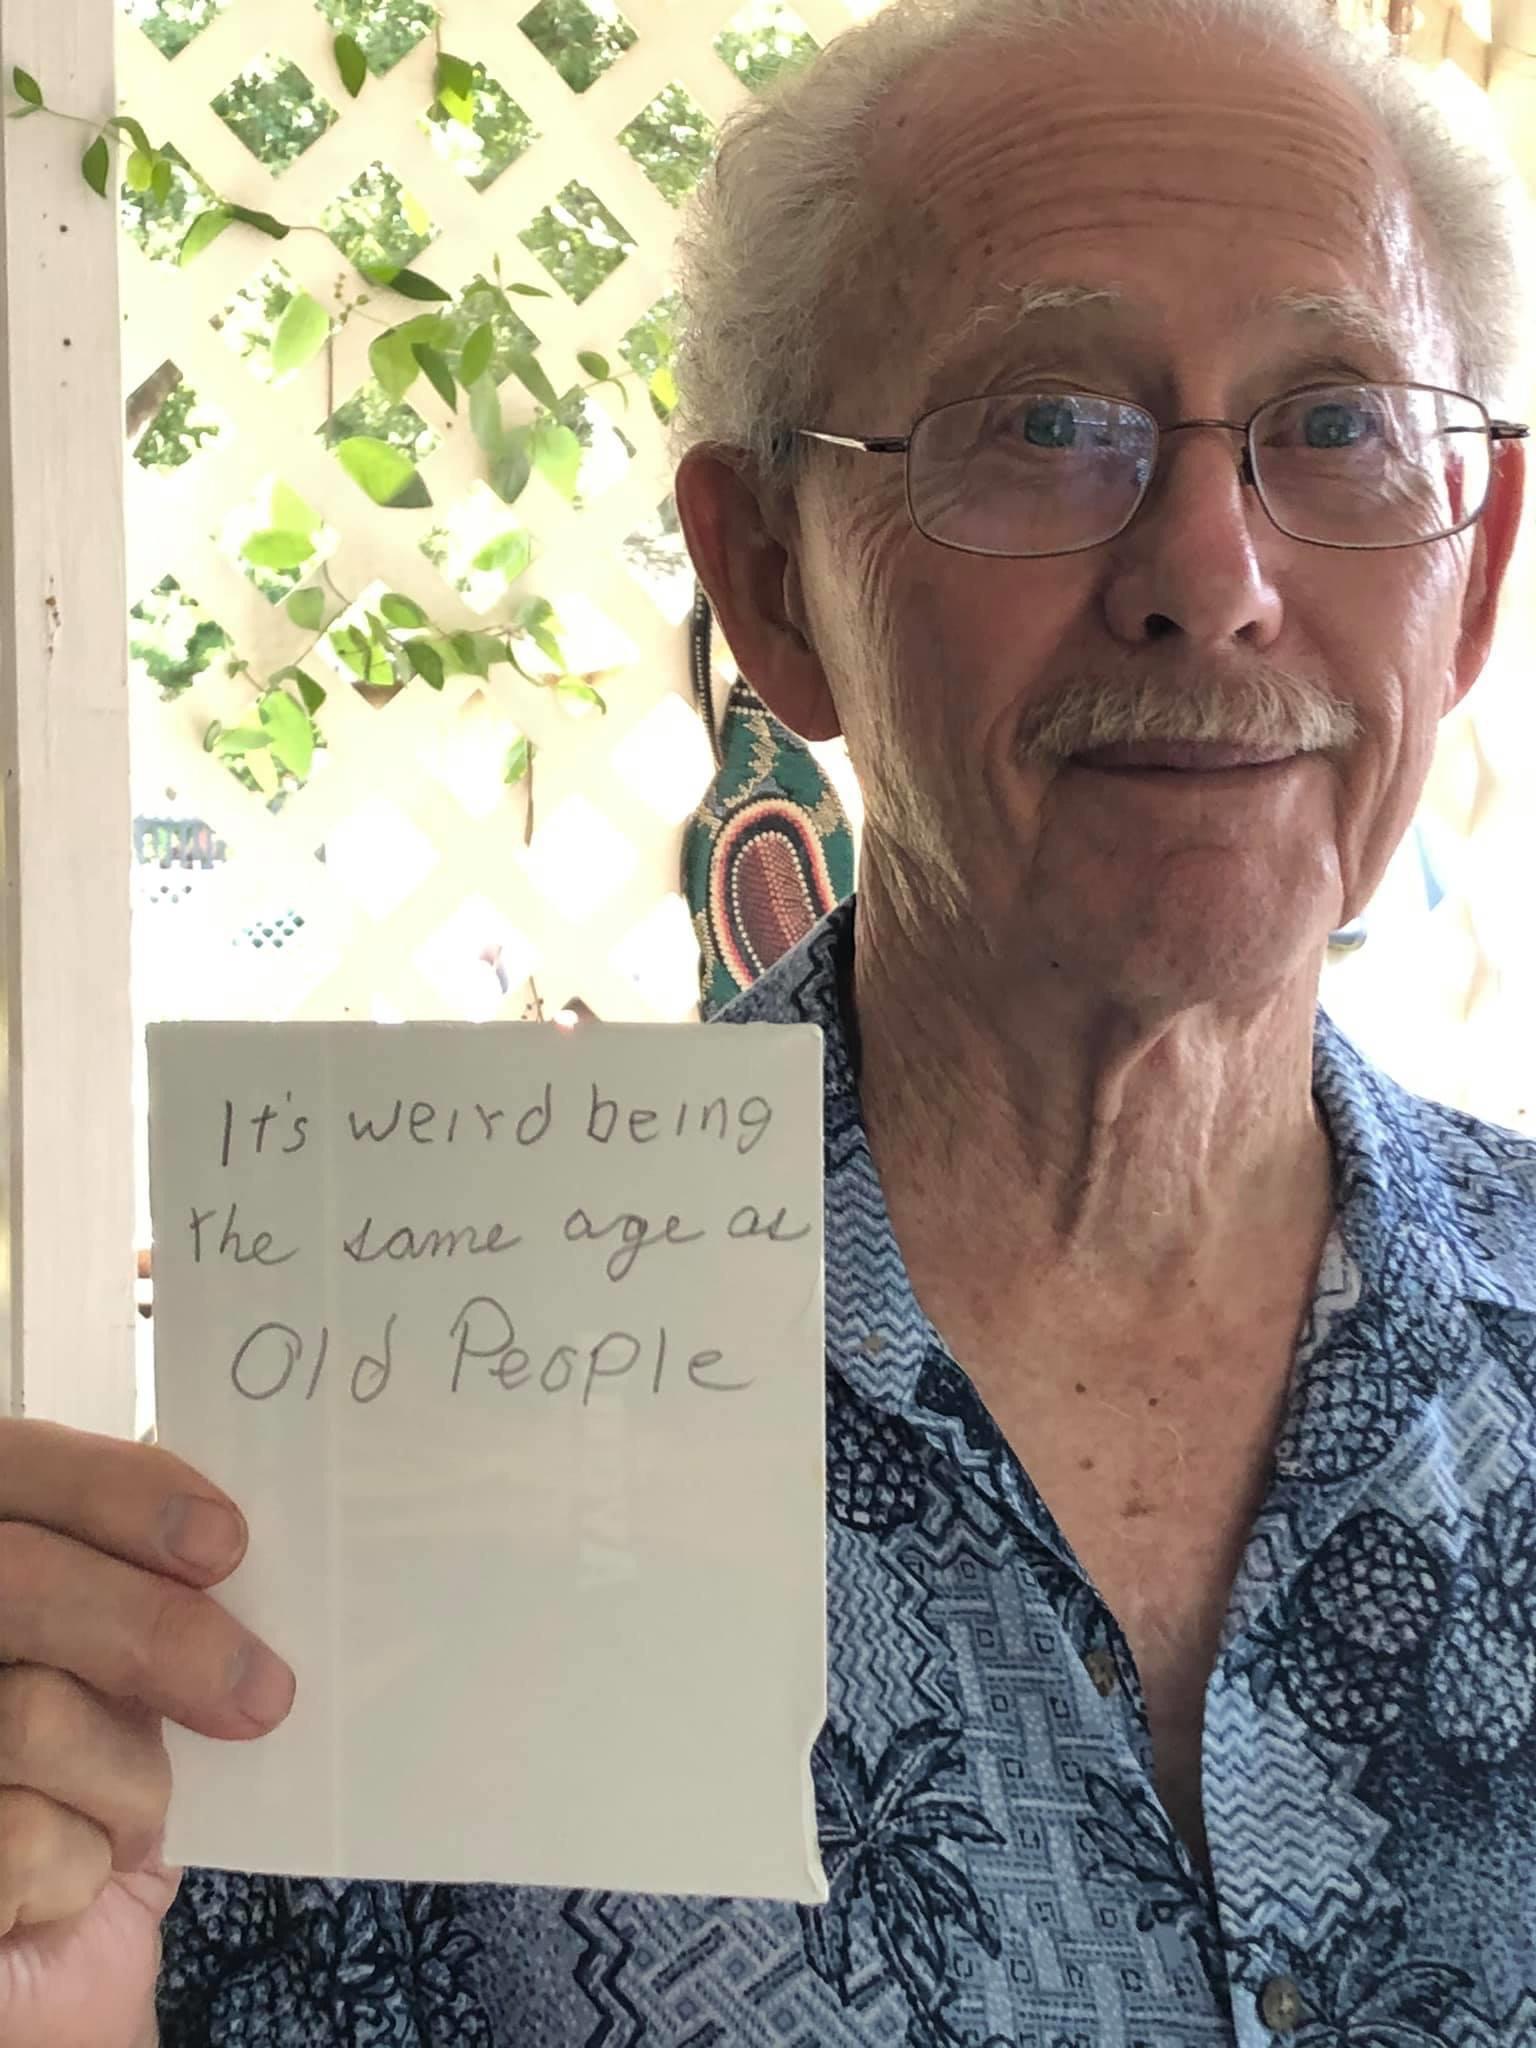 It's weird being
the same age as
Old People